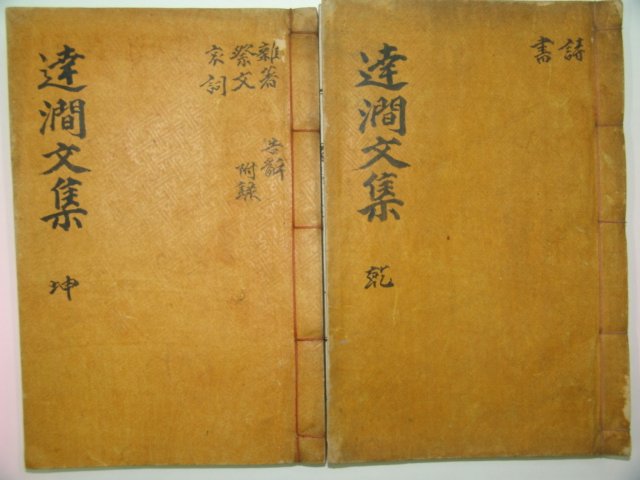 詩
書
達澗文集
乾
雜著
祭文
哀詞
告辭
附錄
達澗文集
坤